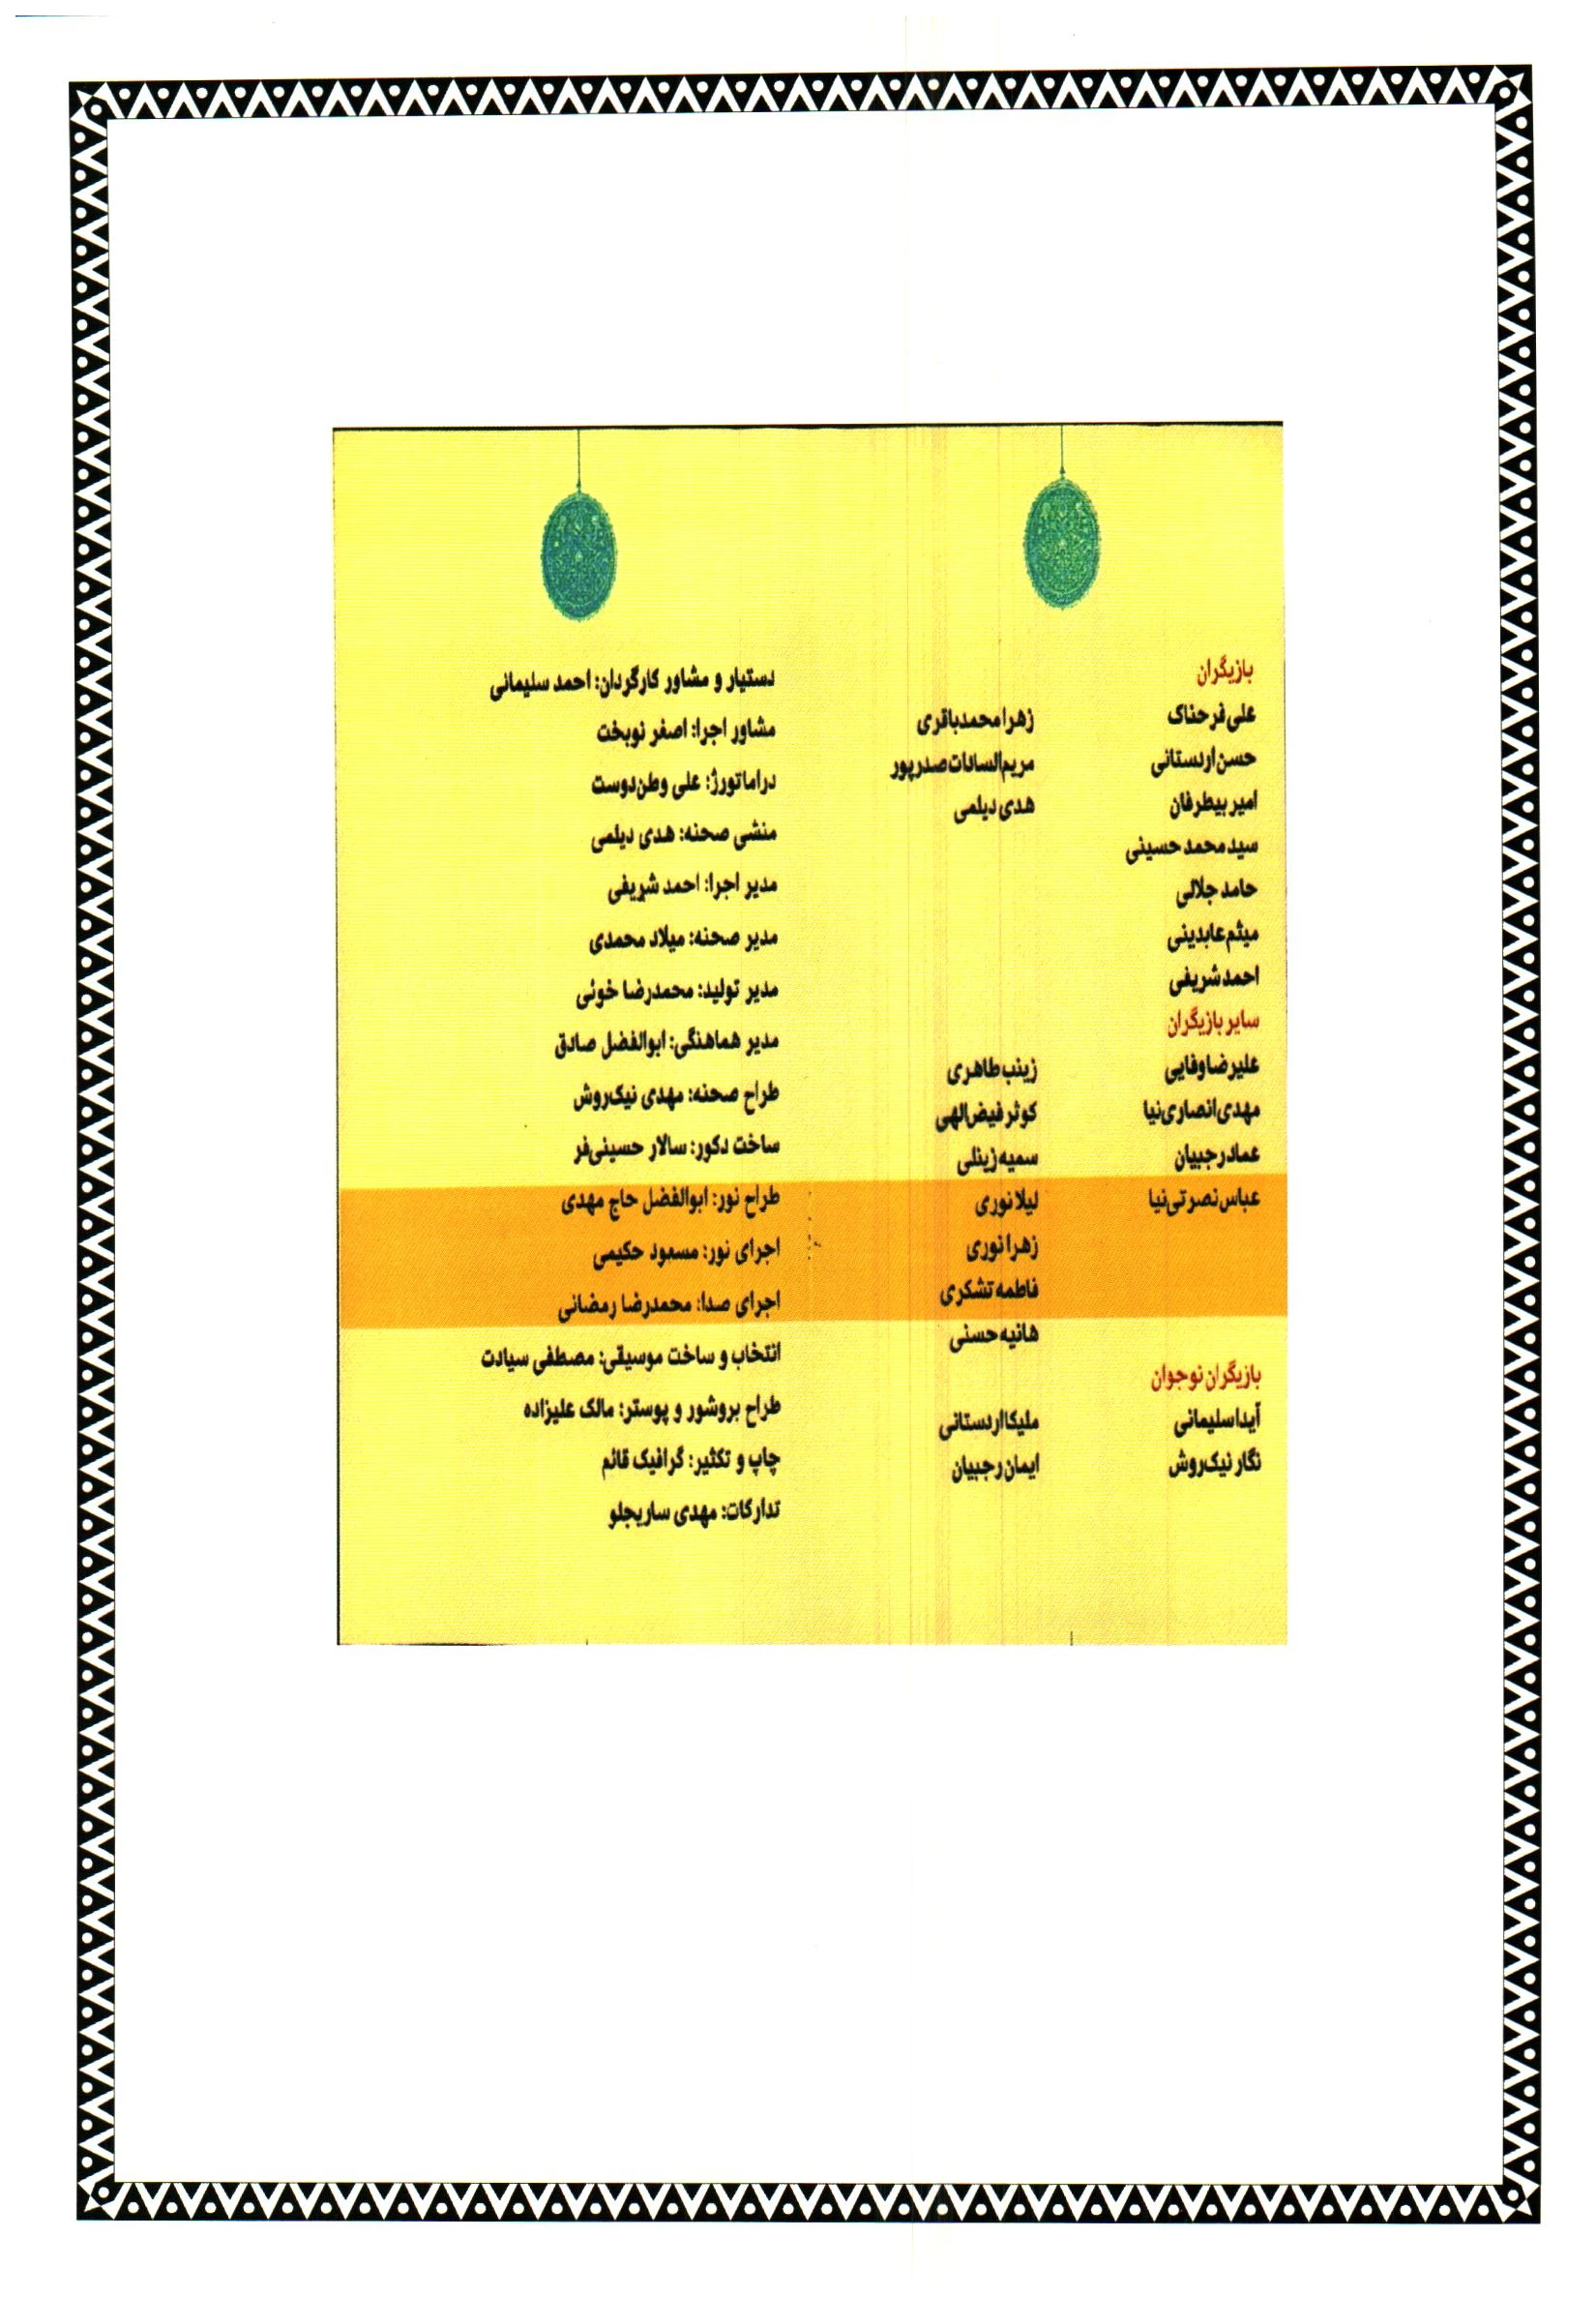 بازیگران
علی فرحناک
حسن اردستانی
امیر بیطرفان
سید محمد حسینی
حامد جلالی
میثم عابدینی
احمد شریفی
زهرا محمدباقری
مریم السادات صدرپور
هدی دیلمی
سایر بازیگران
علیرضا وفایی
مهدی انصاری نیا
عماد رجبیان
عباس نصرتی نیا
زینب طاهری
کوثر فیض الهی
سمیه زینلی
لیلا نوری
زهرا نوری
فاطمه تشکری
هانیه حسنی
بازیگران نوجوان
آیدا سلیمانی
نگار نیک‌روش
ملیکا اردستانی
ایمان رجبیان
دستیار و مشاور کارگردان: احمد سلیمانی
مشاور اجرا: اصغر نوبخت
دراماتورژ: علی وطن‌دوست
منشی صحنه: هدی دیلمی
مدیر اجرا: احمد شریفی
مدیر صحنه: میلاد محمدی
مدیر تولید: محمدرضا خوئی
مدیر هماهنگی: ابوالفضل صادق
طراح صحنه: مهدی نیک‌روش
ساخت دکور: سالار حسینی‌فر
طراح نور: ابوالفضل حاج مهدی
اجرای نور: مسعود حکیمی
اجرای صدا: محمدرضا رمضانی
انتخاب و ساخت موسیقی: مصطفی سیادت
طراح بروشور و پوستر: مالک علیزاده
چاپ و تکثیر: گرافیک قائم
تدارکات: مهدی ساریجلو